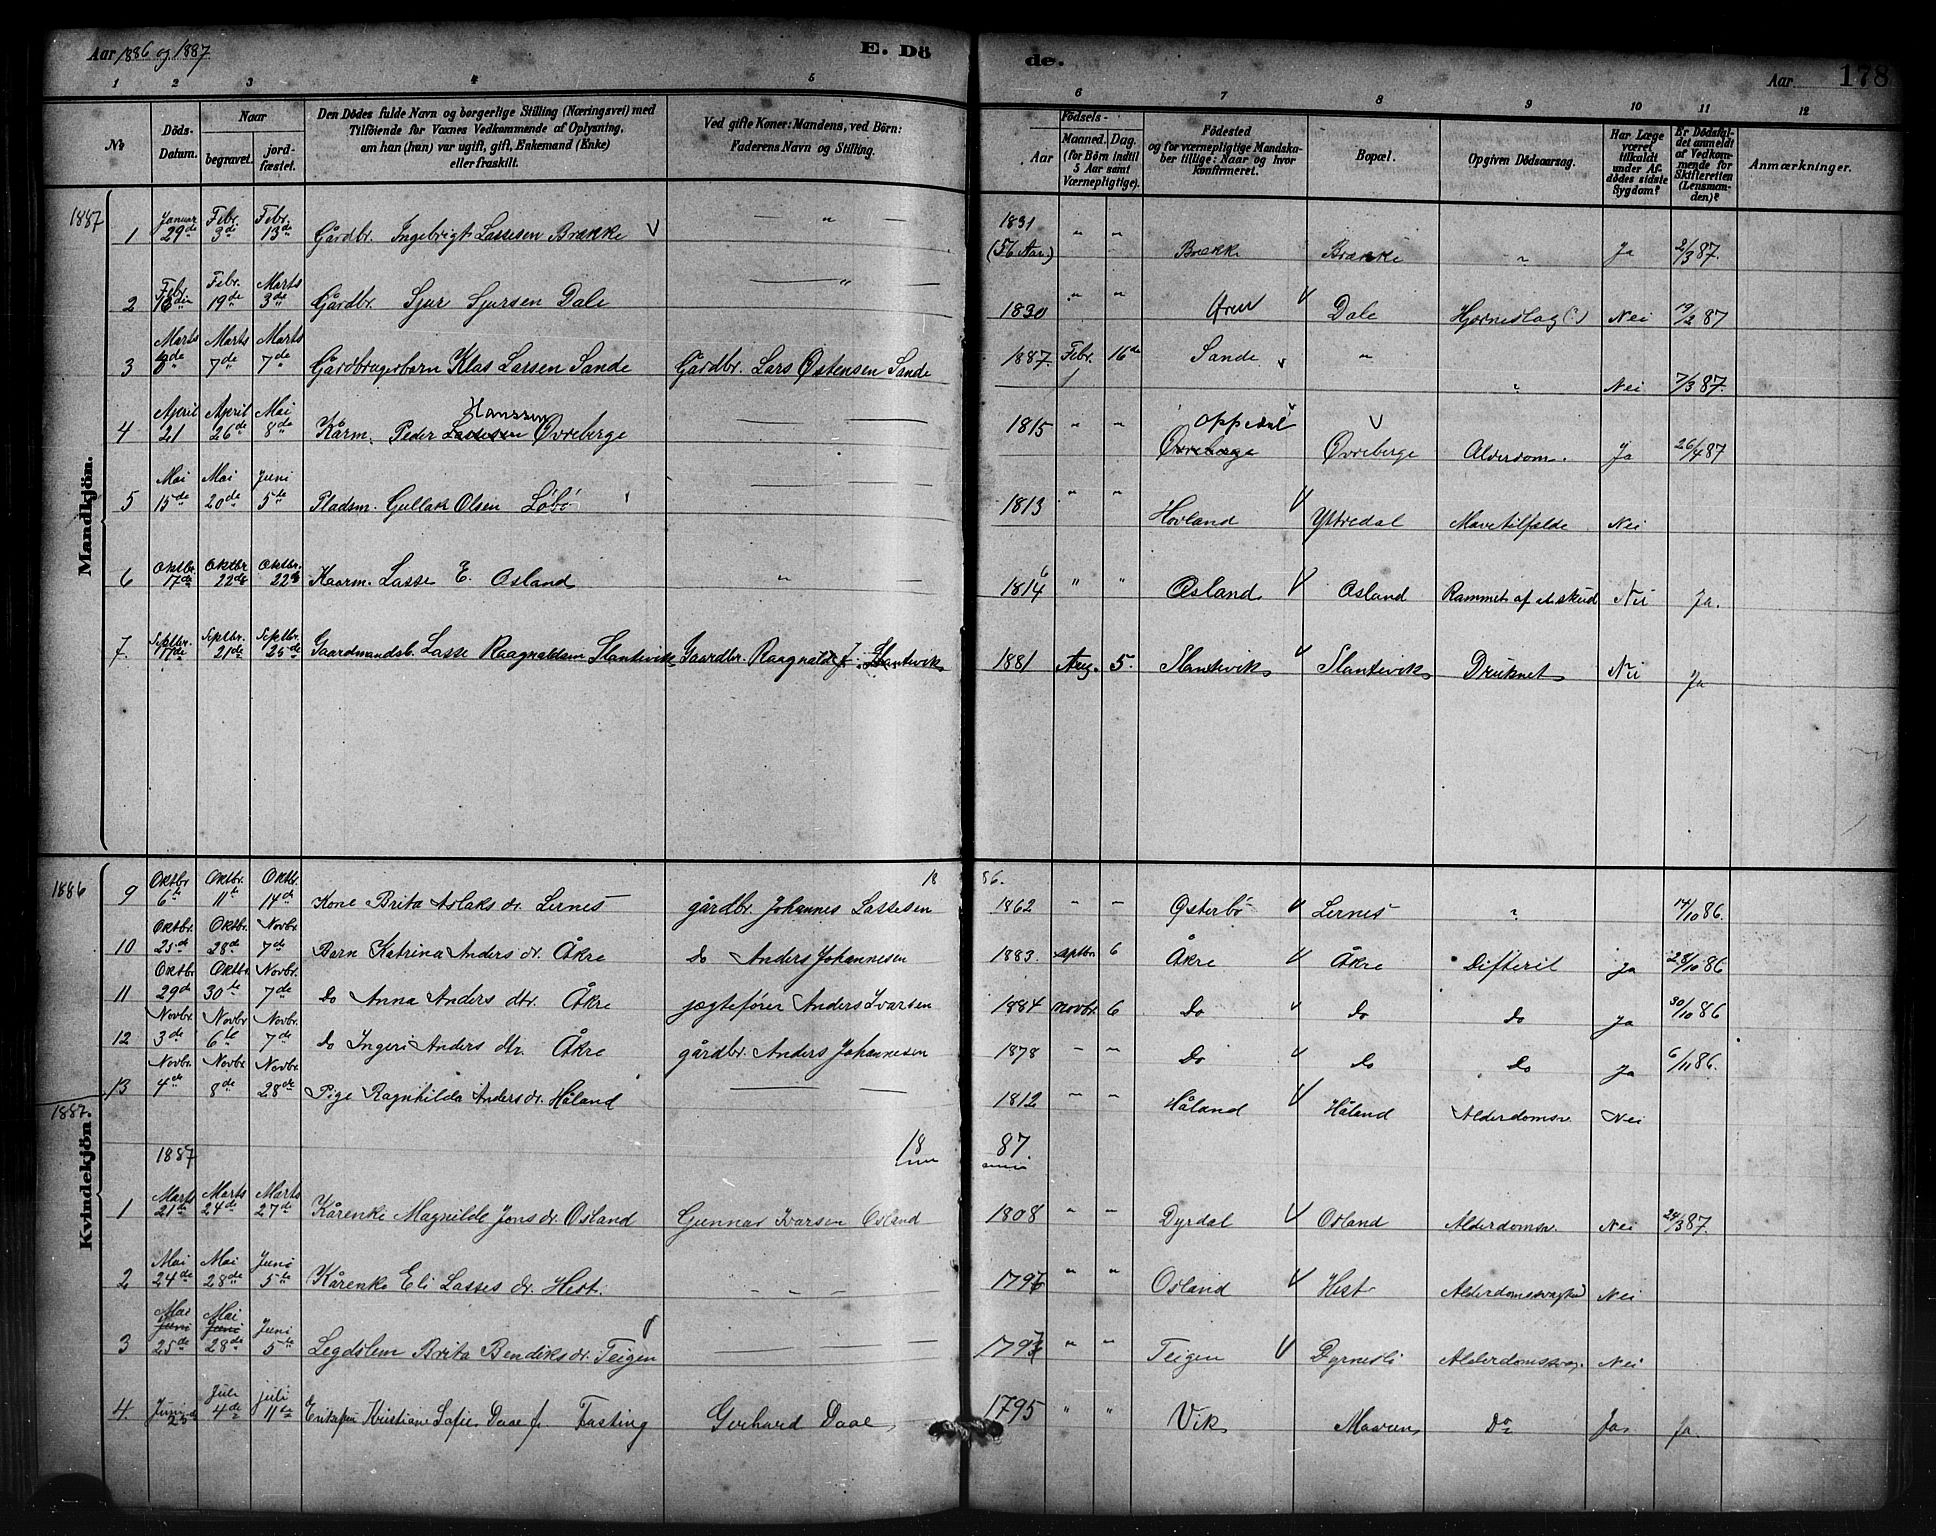 Aar 1886 og 1887. E. Dö de. Aar 178
1 2 3 4 5 6 7 8 9 10 11 12
No
Döds-Datum.
Naar
begravet.
jord-fæstet.
Den Dödes fulde Navn og borgerlige Stilling (Næringsvei) med
Tilföiende for Voxnes Vedkommende af Oplysning,
om han (hun) var ugift, gift, Enkemand (Enke)
eller fraskilt.
Ved gifte Koner: Mandens, ved Börn:
Faderens Navn og Stilling.
Födsels-
Aar
Maaned. Dag.
(for Börn indtil
5 Aar samt
Værnepligtige).
Födested
og for værnepligtige Mandska-
ber tillige: Naar og hvor
konfirmeret.
Bopæl.
Opgiven Dödsaarsag.
Har Læge
været
tilkaldt
under Af-
dödes sidste
Sygdom?
Er Dödsfal-
det anmeldt
af Vedkom-
mende for
Skifteretten
(Lensman-
den)?
Anmærkninger.
Mandkjön.
1887
1 Januar 29de Febr. 3di Febr. 13de Gårdbr. Ingebrigt Lassesen Brække V — " — 1831 (56 Aar.) " " Brække Brække " Ja 2/3 87.
2 Febr. 19de Marts 3de Gårdbr. Sjur Sjursen Dale — " 1830 " " V Dale Hjerneslag (?) Nei /2 87
3 Marts Marts 7de Marts 7de Gårdbrugerbarn Klas Larsen Sande Gårdbr. Lars Østensen Sande 1887. Febr. 16de Sande " " Nei 7/3 87.
4 April 21 April 26de Mai 8de Kårm. Peder Lassesen Hanssen Øvreberge — — 1815 " " Øvreberge Oppedal V Øvreberge Alderdom. Ja 26/4 87
5 Mai 15de Mai 20de Juni 5de Pladsm. Gullak Olsen Löbö — — 1813 " " Hovland V Yttredal Mavetilfælde Nei
6 Oktbr. 17de Oktbr 22de Oktbr. 22de Kaarm. Lasse E. Osland " — 1814 6 " " Osland V Osland Rammet af et skud Nei Ja.
7. Septbr. 17de Septbr. 21de Septbr. 25de Gaardmandsb. Lasse Raagnaldsen Slantevik Gaardbr. Raagnald J. Slantevik 1881 Aug. 5. Slantevik V Slantevik Druknet Nei Ja
Kvindekjön
1886 18 86.
9 Oktbr 6te Oktbr. 11te Oktbr. 14de Kone Brita Aslaks dr. Lernes gårdbr. Johannes Lassesen 1862 " " Østerbö V Lernes " 14/10 86.
10 Oktbr. 25de Oktbr. 28de Novbr. 7de Barn Katrina Anders dr. Åkre do Anders Johannesen 1883. Septbr 6 Åkre V Åkre Difterit ja 28/10 86
11 Oktbr 29de Oktbr. 30te Novbr. 7de do Anna Anders dtr. Åkre jægtefører Anders Ivarsen 1884 Novbr. 6 do V do do ja 30/10 86
12 Novbr. 3de Novbr. 6te Novbr. 7de do Ingeri Anders dtr. Åkre gårdbr. Anders Johannesen 1878 " " do V do do ja 6/11 86.
13 Novbr. 4de Novbr. 8de Novbr. 28de Pige Ragnhilda Anders dr. Håland — — 1812 " " Håland V Håland Alderdomssv. Nei
1887.
1887 18 87.
1 Marts 21de Marts 24de Marts 27de Kårenke Magnilde Jons dr. Osland Gunnar Ivarsen Osland 1808 " " Dyrdal V Osland Alderdomssv. Nei 24/3 87.
2 Mai 24de Mai 28de Juni 5te Kårenke Eli Lasses dr. Hest. — — — 1796 " " Osland V Hest Alderdomssvaghed Nei
3 Mai Juni 25de Mai Juni 28de Juni 5te Legdslem Brita Bendiks dr. Teigen — — — 1797 " " Teigen V Dyrnesli Alderdomssvag. Nei
4. Juni 25 Juli 4de juli 11te Enkefru Kristiane Sofie Daae f. Fasting Gerhard Daae, 1795 " " Vik Maaren do Ja. Ja.